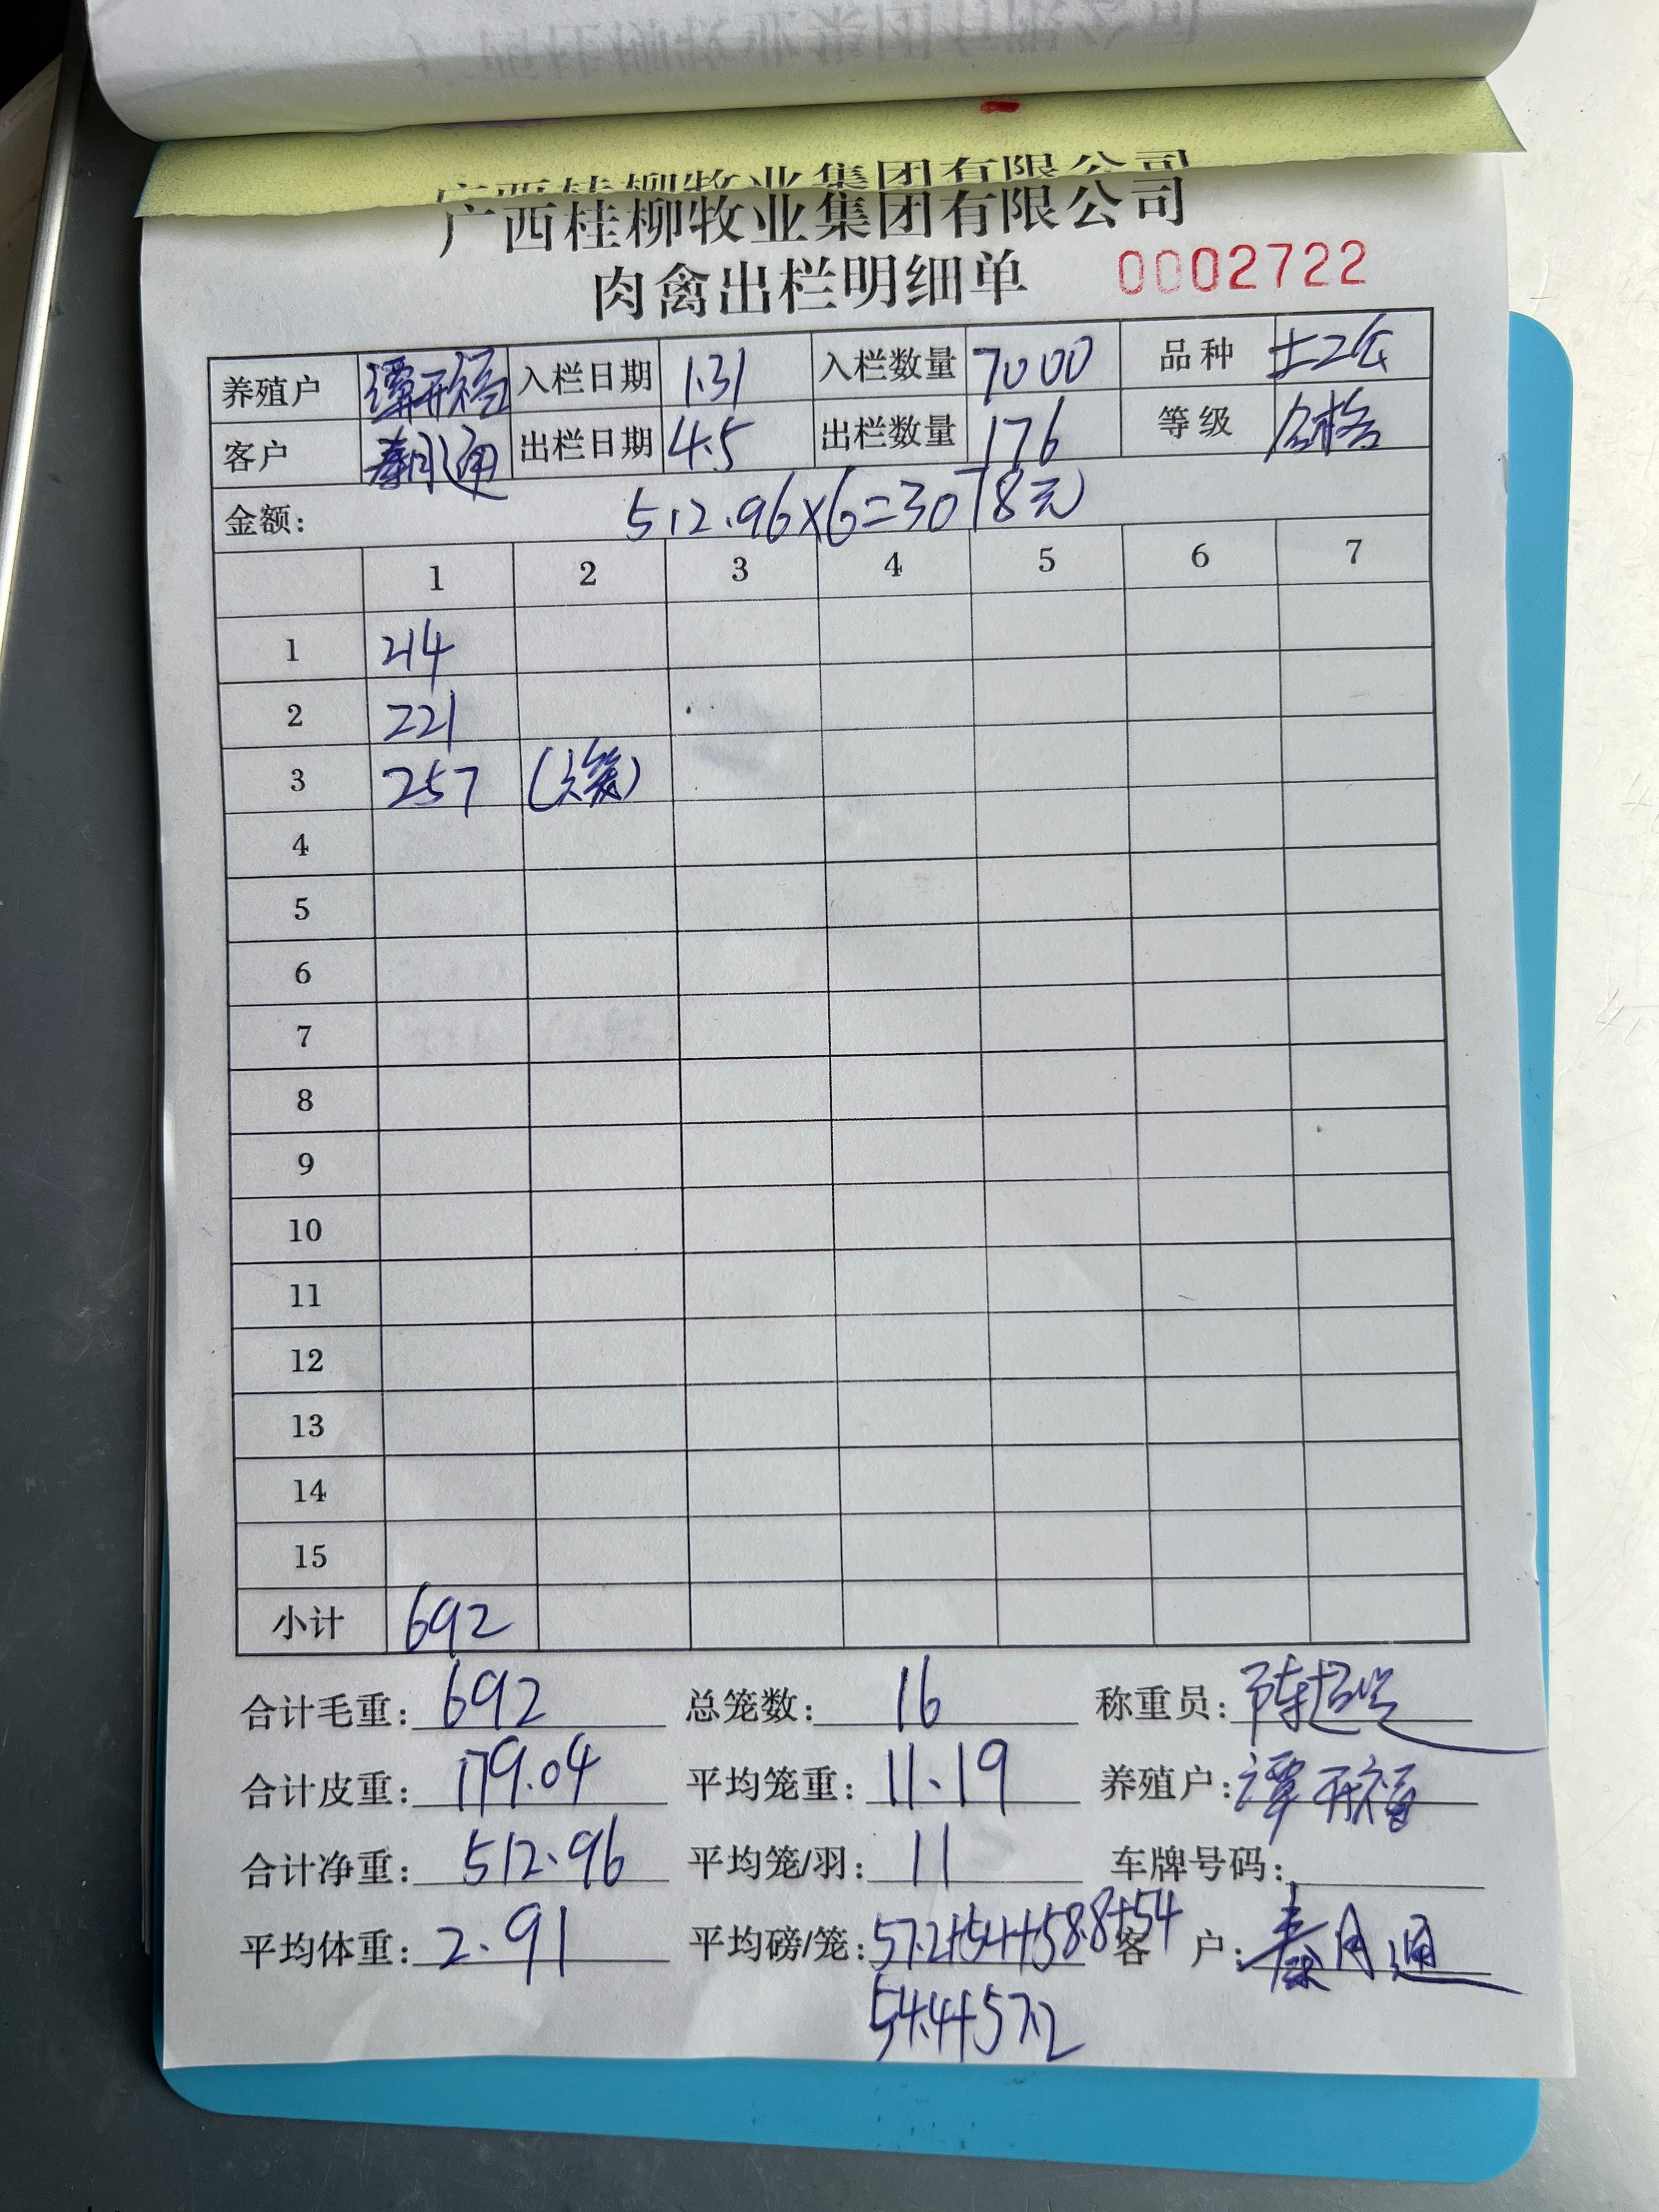 广西桂柳牧业集团有限公司
广西桂柳牧业集团有限公司
肉禽出栏明细单 0002722
养殖户 谭开福 入栏日期 1.31 入栏数量 7000 品种 土2公
客户 秦月通 出栏日期 4.5 出栏数量 176 等级 合格
金额: 512.96×6=3078元
1 2 3 4 5 6 7
1 214
2 221
3 257 (6笼)
4
5
6
7
8
9
10
11
12
13
14
15
小计 692
合计毛重: 692 总笼数: 16 称重员: 陈超
合计皮重: 179.04 平均笼重: 11.19 养殖户: 谭开福
合计净重: 512.96 平均笼/羽: 11 车牌号码:
平均体重: 2.91 平均磅/笼: 57.2+54+58.8+54 客户: 秦月通
54.4+57.2